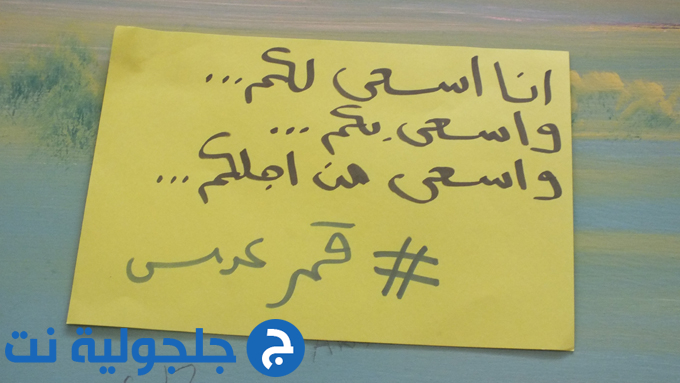 انا اسعى لكم...
واسعى بكم...
واسعى من اجلكم...
# قمر عدس
جلجولية نت